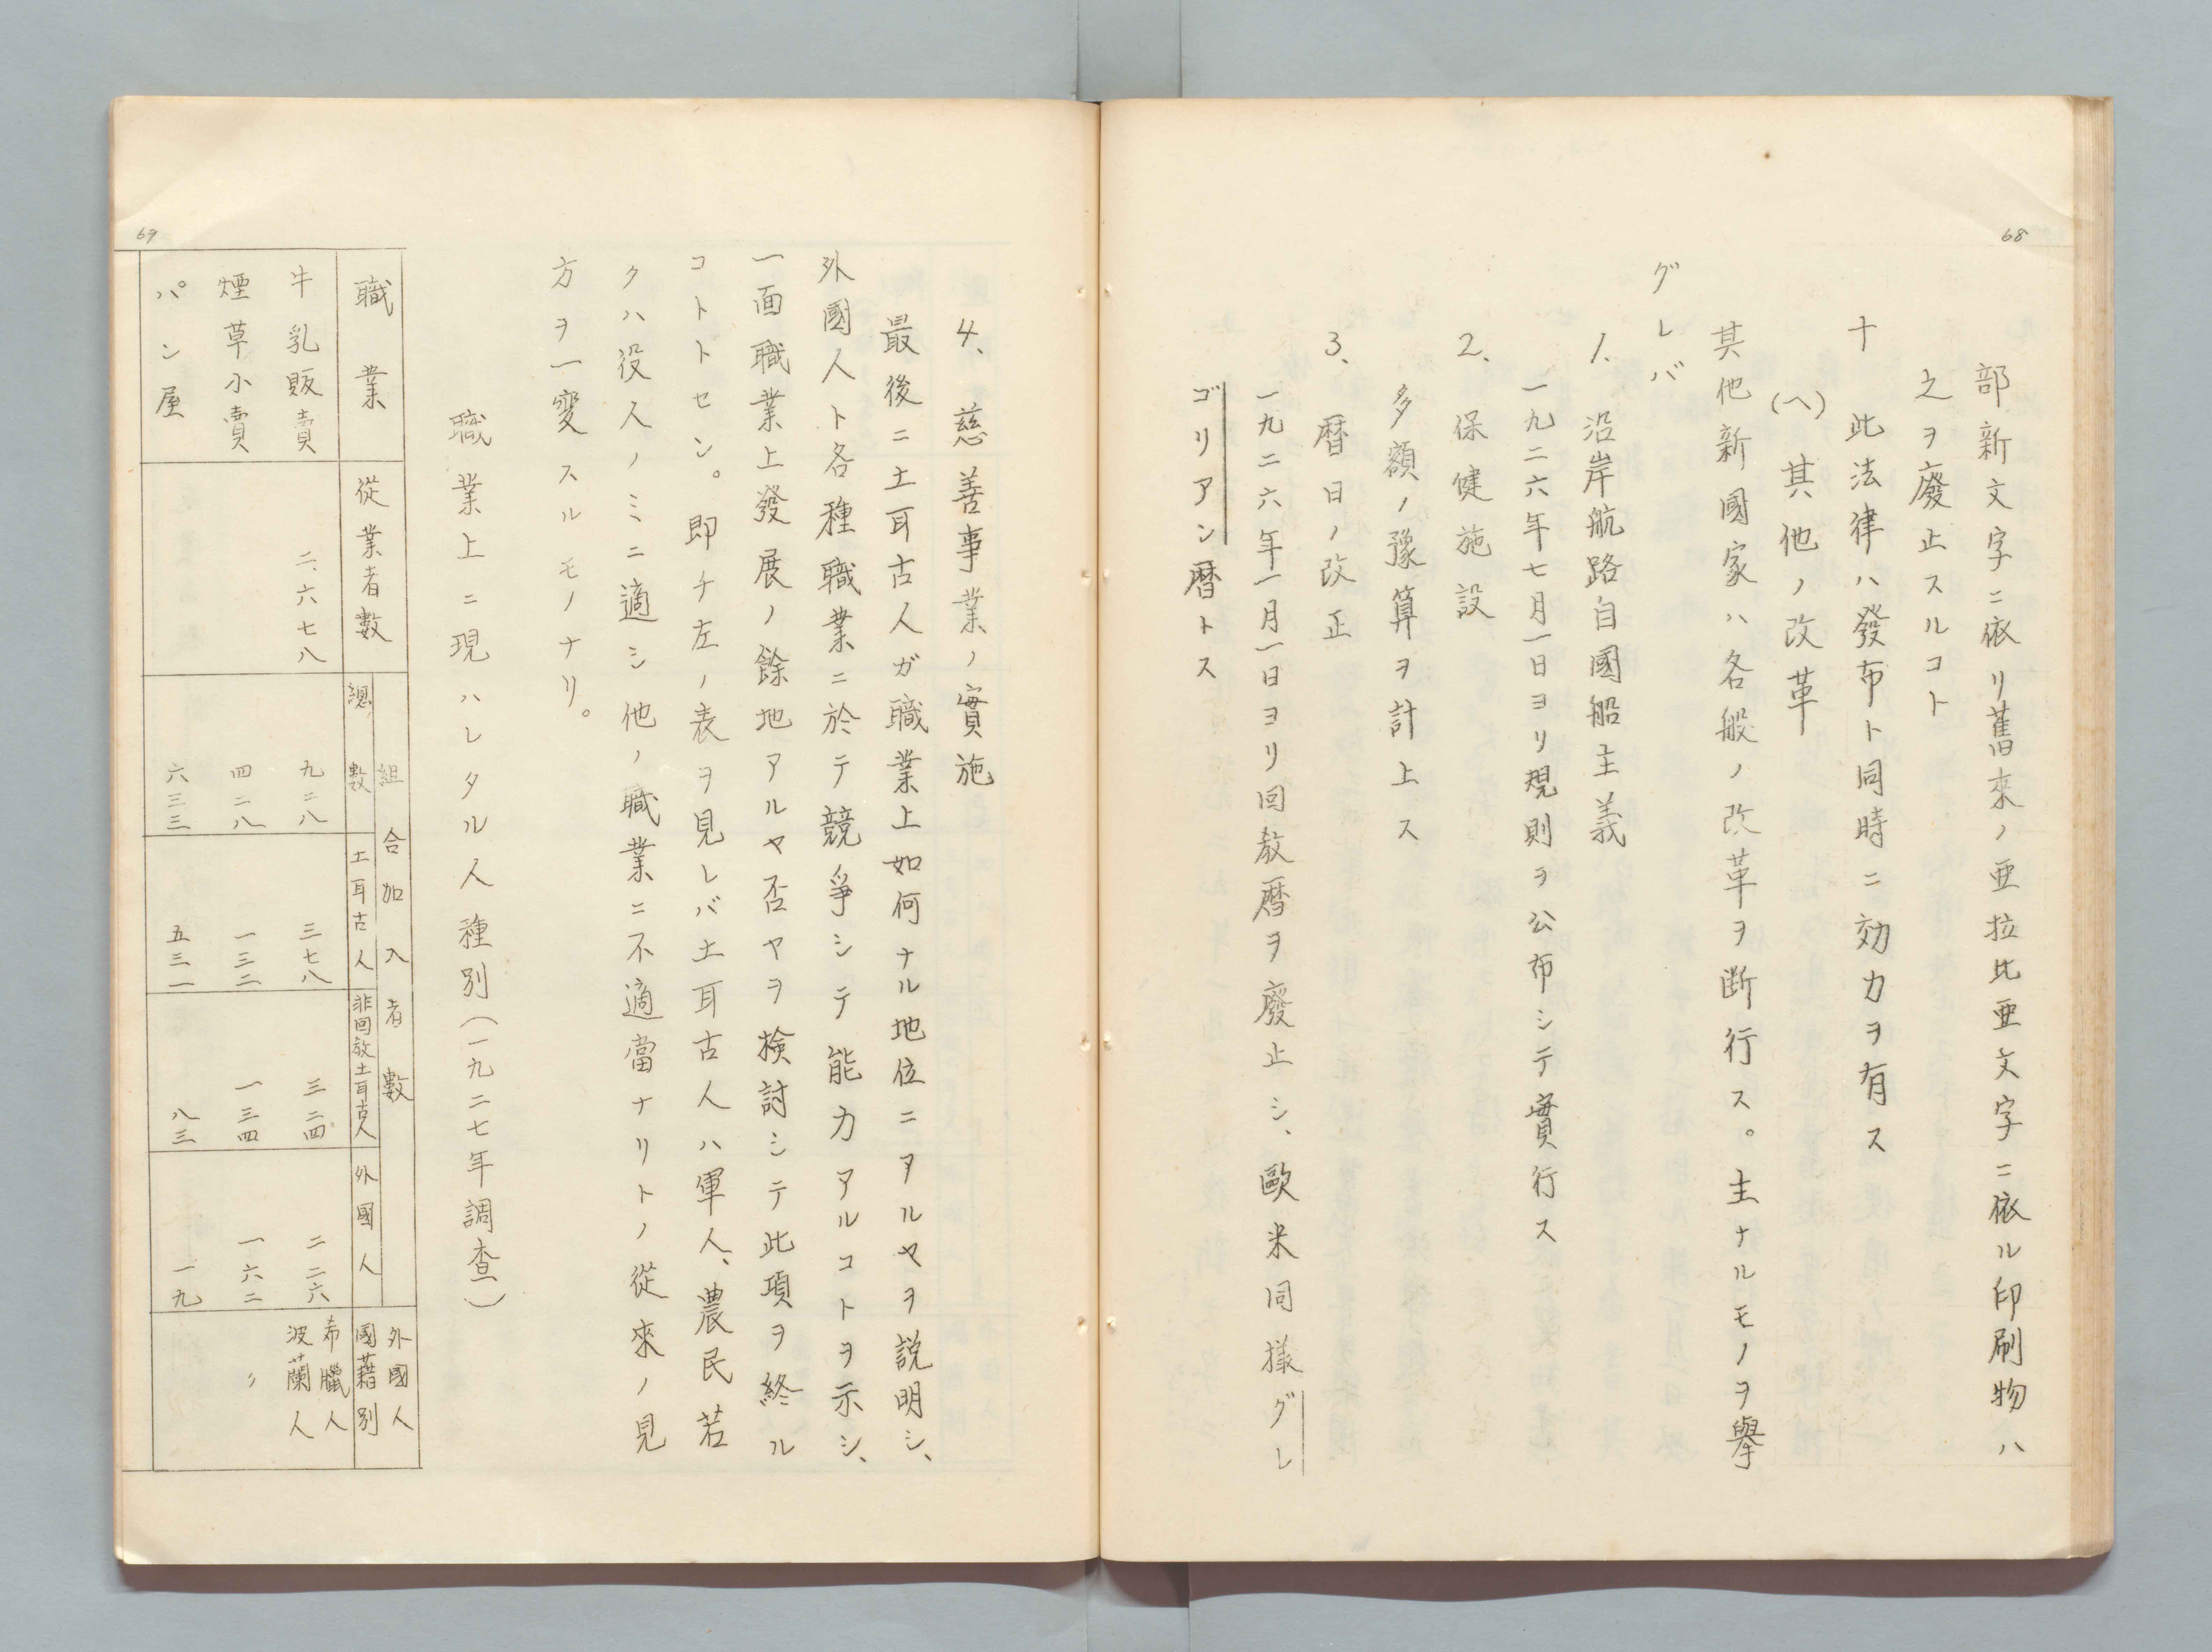 68
部新文字ニ依リ舊來ノ亜拉比亜文字ニ依ル印刷物ハ
之ヲ廢止スルコト
十　此法律ハ發布ト同時ニ効力ヲ有ス
(ヘ)　其他ノ改革
其他新國家ハ各般ノ改革ヲ断行ス。主ナルモノヲ擧
グレバ
1.　沿岸航路自國船主義
一九二六年七月一日ヨリ規則ヲ公布シテ實行ス
2、　保健施設
多額ノ豫算ヲ計上ス
3、　暦日ノ改正
一九二六年一月一日ヨリ回教暦ヲ廢止シ、歐米同様グレ
ゴリアン暦トス
69
4、　慈善事業ノ實施
最後ニ土耳古人ガ職業上如何ナル地位ニヲルヤヲ説明シ、
外國人ト各種職業ニ於テ競爭シテ能力アルコトヲ示シ、
一面職業上發展ノ餘地アルヤ否ヤヲ検討シテ此項ヲ終ル
コトトセン。即チ左ノ表ヲ見レバ土耳古人ハ軍人、農民若
クハ役人ノミニ適シ他ノ職業ニ不適當ナリトノ從來ノ見
方ヲ一変スルモノナリ。
職業上ニ現ハレタル人種別(一九二七年調査)
職業　從業者數　組合加入者數　外國人國籍別
總數　土耳古人　非回教土耳古人　外國人
牛乳販賣　二、六七八　九二八　三七八　三二四　二二六　希臘人　波蘭人
煙草小賣　四二八　一三二　一三四　一六二　〃
パン屋　六三三　五三一　八三　一九